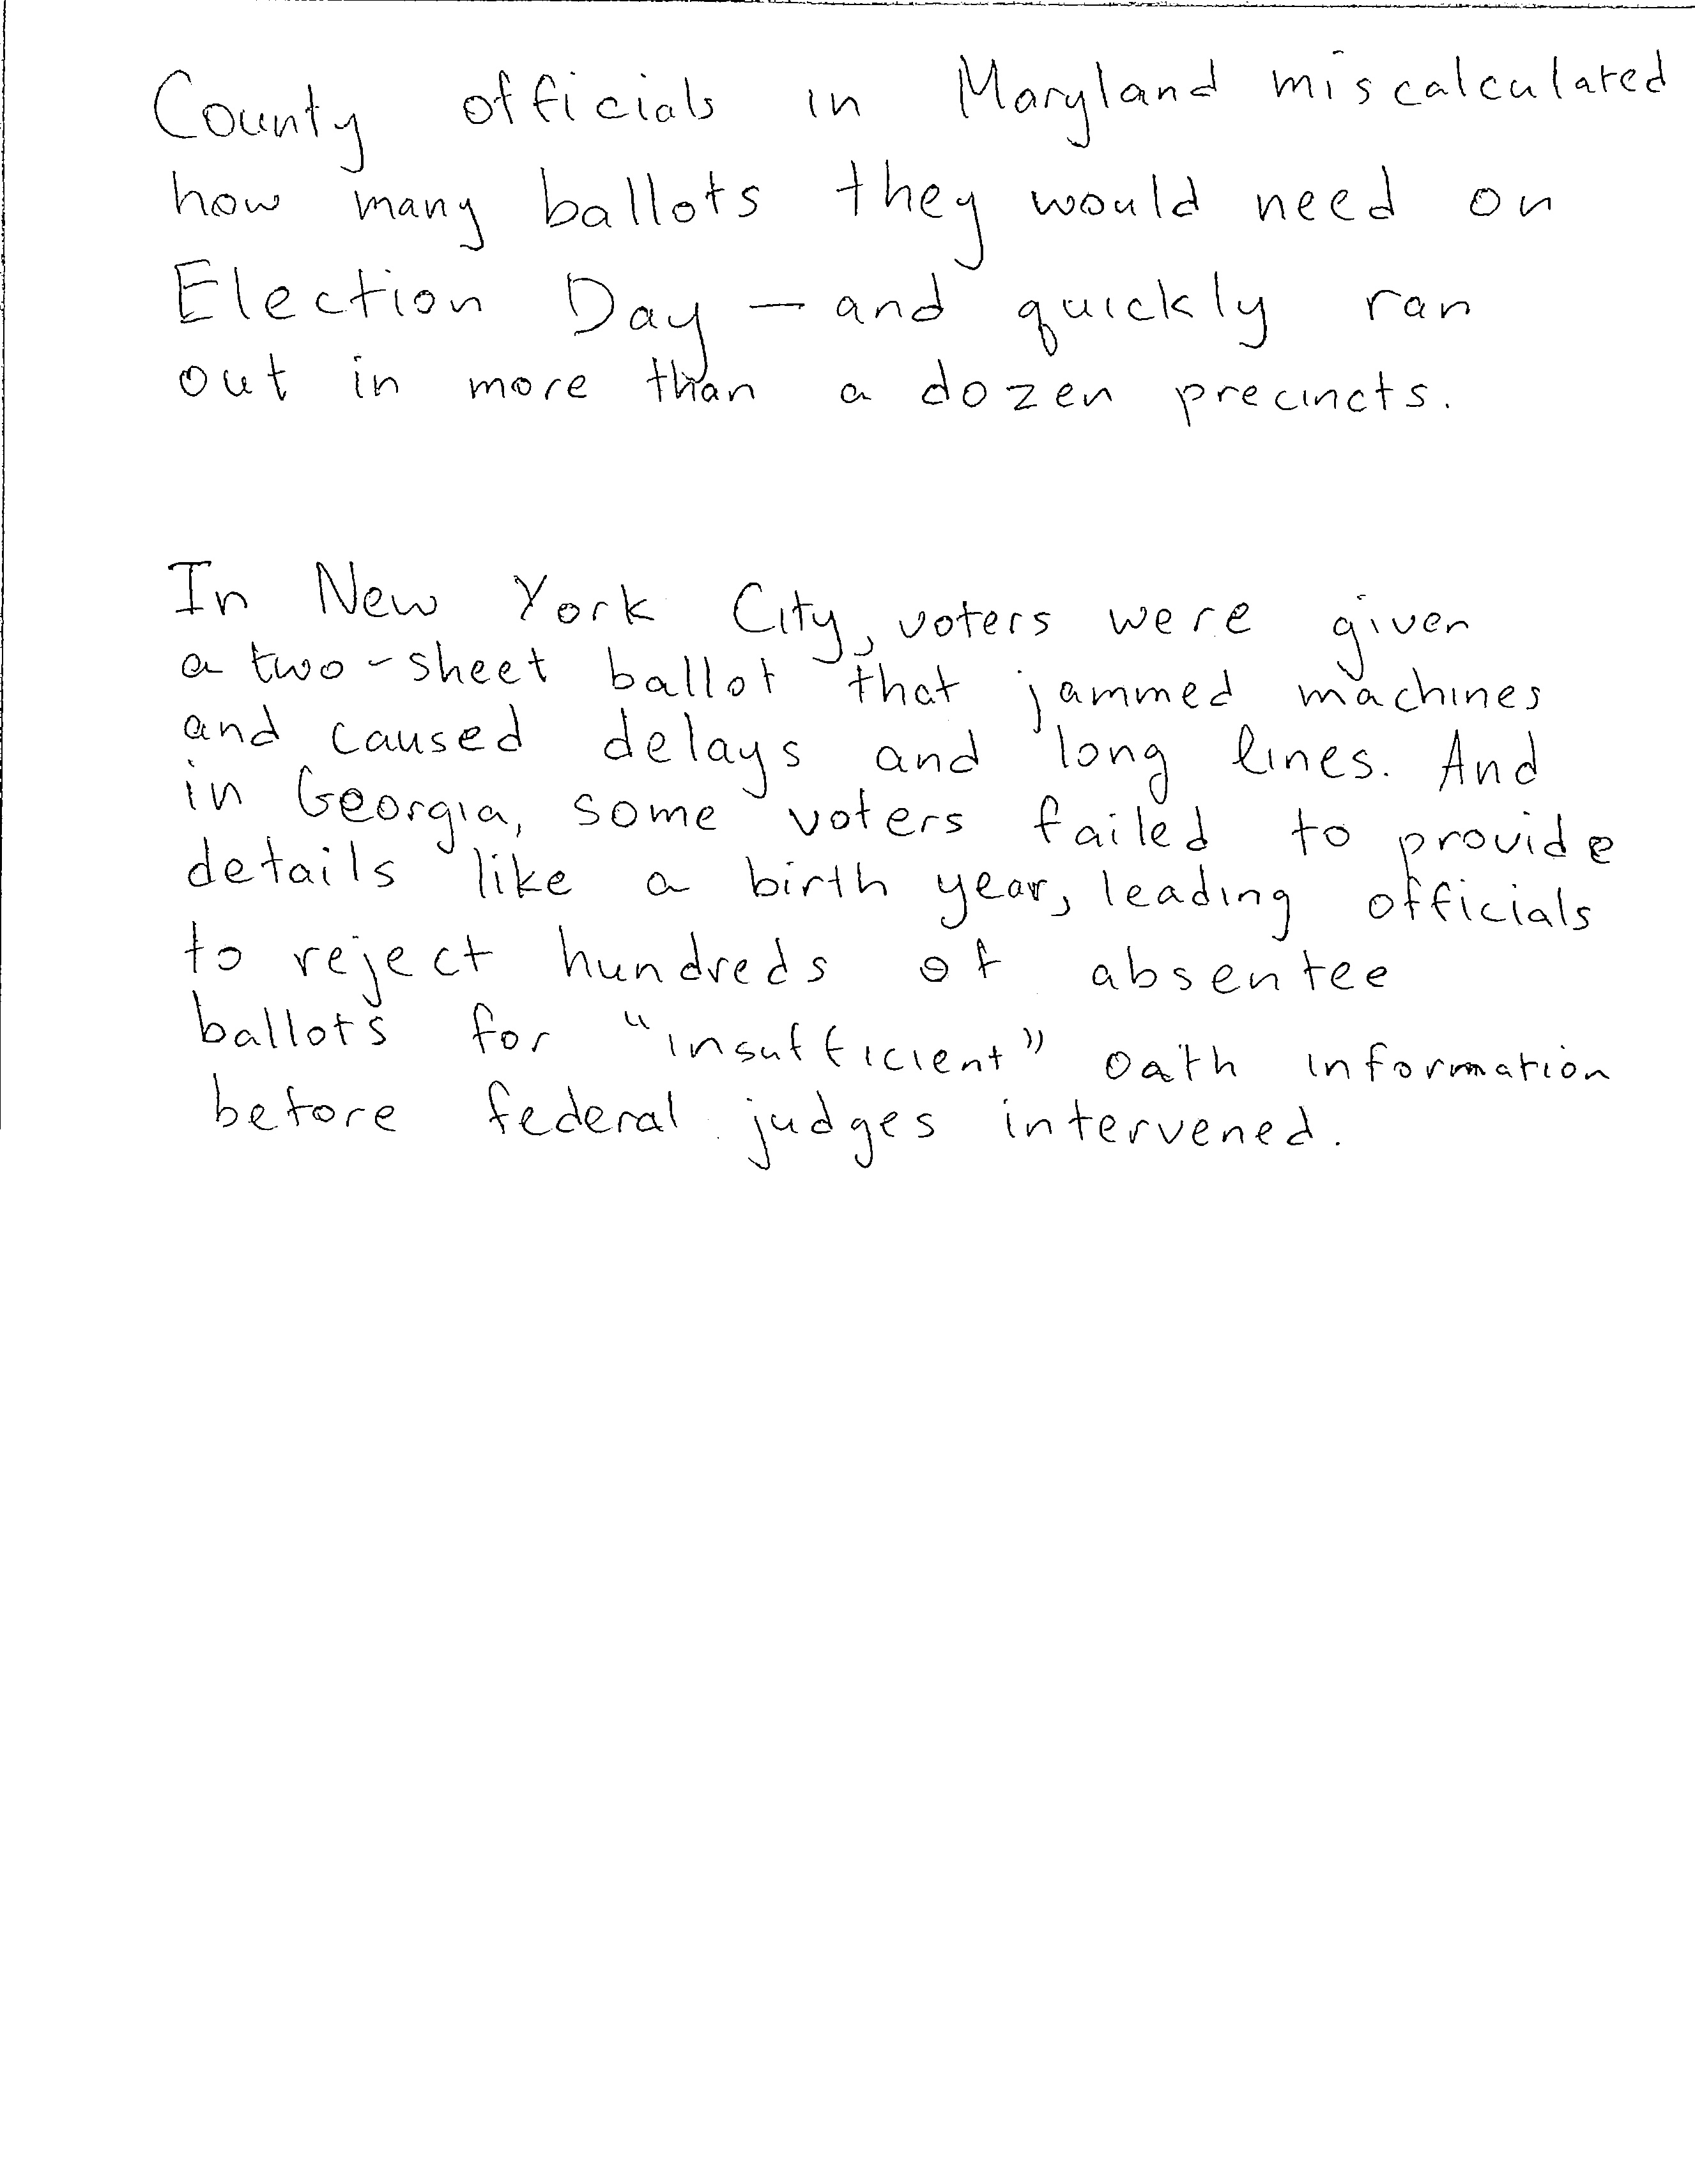 County officials in Maryland miscalculated
how many ballots they would need on
Election Day — and quickly ran
out in more than a dozen precincts.
In New York City, voters were given
a two-sheet ballot that jammed machines
and caused delays and long lines. And
in Georgia, some voters failed to provide
details like a birth year, leading officials
to reject hundreds of absentee
ballots for "insufficient" oath information
before federal judges intervened.